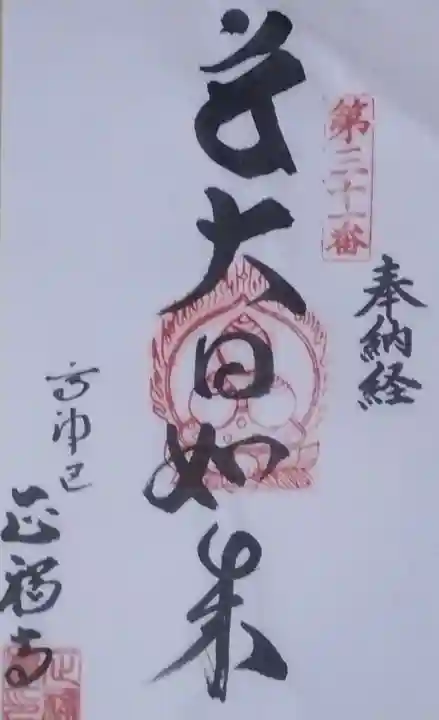 第三十一番
奉納経
大日如来
正福寺